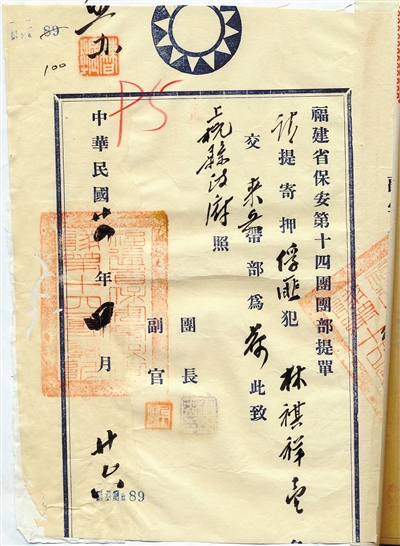 福建省保安第十四團團部提單
請提寄押俘匪犯林祺祥壹
交來兵帶部爲荷此致
上杭縣政府照
團長
副官
中華民國年四月廿六
89
100
P5
89